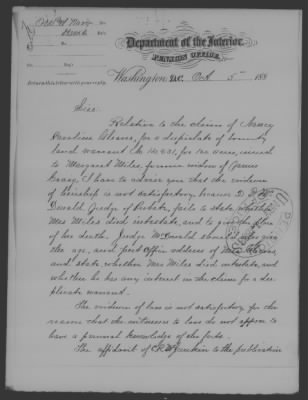 Department of the Interior,
PENSION OFFICE,
Washington, D.C. Oct 5 188
Sir:
Relative to the claim of Nancy
Caroline for a duplicate of bounty
land warrant No for 160 acres, issued
to Margaret Miles, former widow of James
I have to advise you that the evidence
of heirship is not satisfactory
Donald Judge of Probate, fails to state whether
Mrs Miles died intestate, and to give the place
of her death. Judge McDonald should also give
the age, and post office address of
and state whether Mrs Miles died intestate, and
whether he has any interest in the claim for a du-
plicate warrant.
The evidence of loss is not satisfactory for the
reason that the witnesses to loss do not appear to
have a personal knowledge of the facts.
The affidavit of to the publication